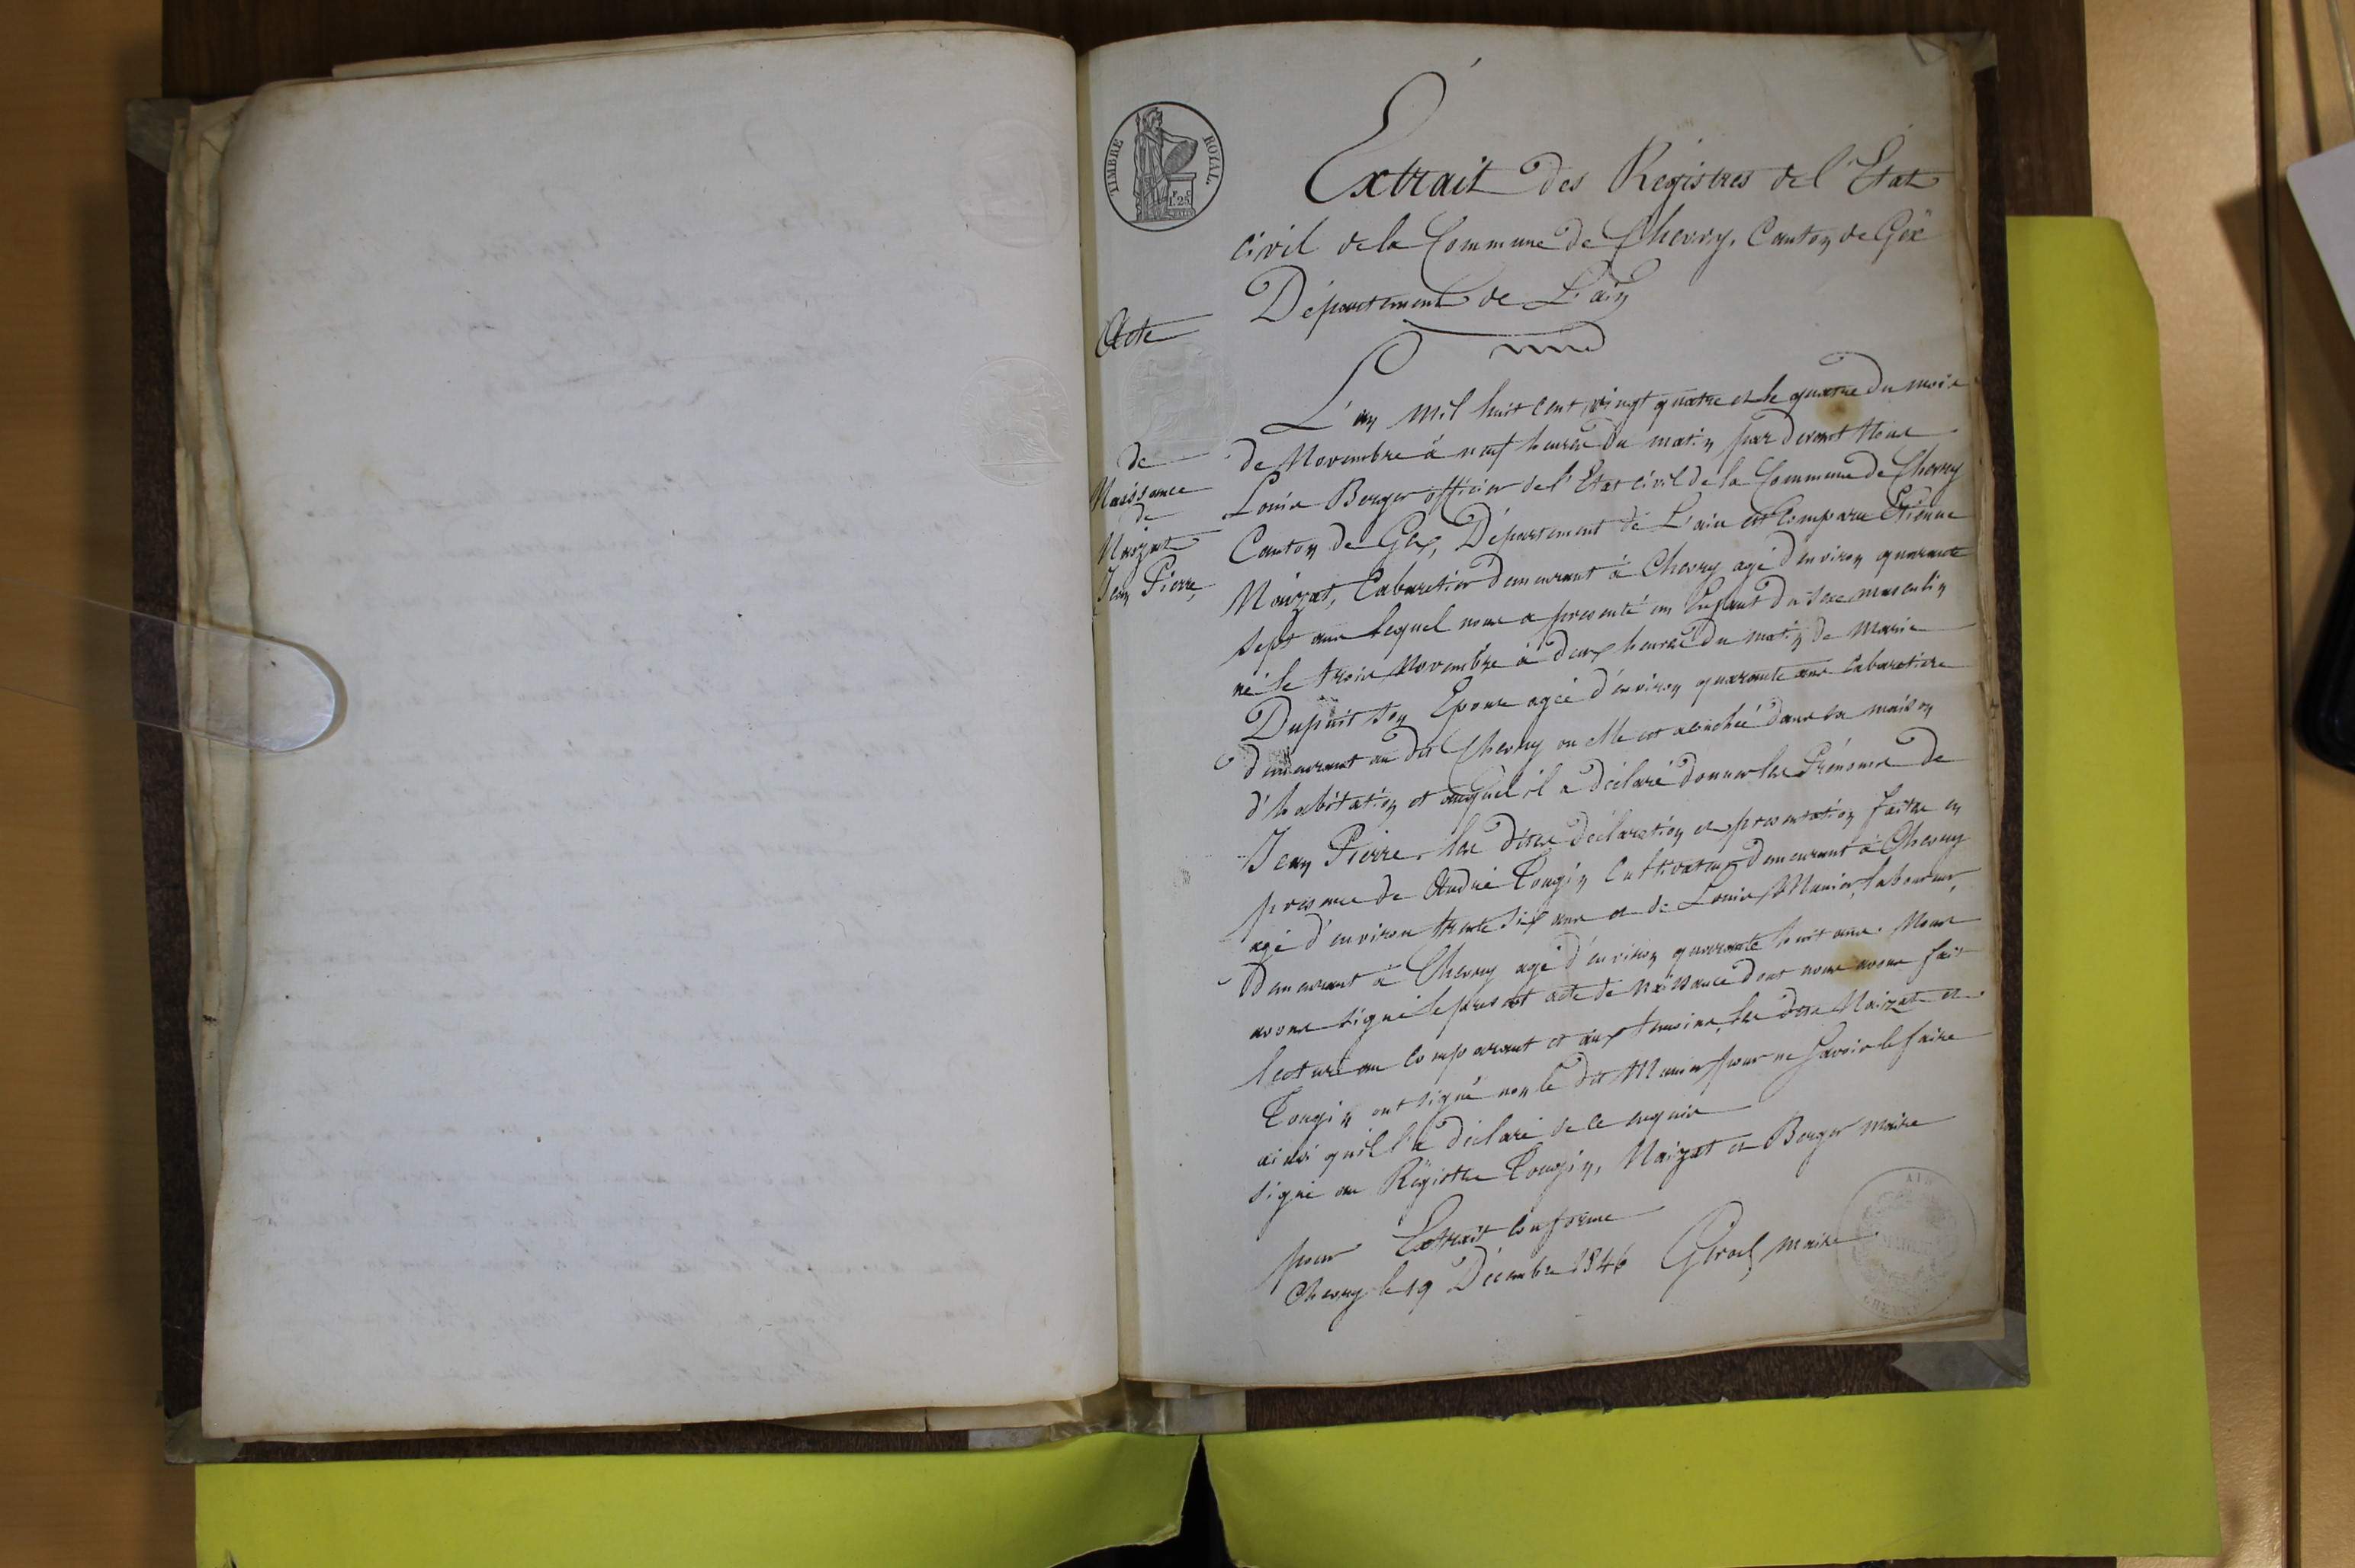 TIMBRE ROYAL.
1.25
Extrait des Registres de l'Etat
civil de la Commune de Chevry, Canton de Gex
Département de L'ain
Acte
de
Naissance
de
Maizat
Jean Pierre,
L'an mil huit cent vingt quatre et le quatre du mois
de Novembre à neuf heures du matin par devant Nous
Louis Berger officier de l'Etat civil de la Commune de Chevry
Canton de Gex, Département de L'ain est comparu Etienne
Maizat, Cabaretier demeurant à Chevry agé d'environ quarante
sept ans lequel nous a presenté un Enfant du sexe masculin
né le trois Novembre à deux heures du matin de Marie
Dupuit son Epouse agée d'environ quarante ans cabaretiere
demeurant au dit Chevry ou elle est acouchée dans sa maison
d'habitation et auquel il a déclaré donner les Prénoms de
Jean Pierre. les dites déclaration et presentation faites en
presence de André Tougin Cultivateur demeurant à Chevry
agé d'environ trente six ans et de Louis Munier, laboureur,
demeurant à Chevry agé d'environ quarante huit ans. Nous
avons signé le present acte de naissance dont nous avons fait
lecture au comparant et aux temoins, les dits Maizat et
Tougin ont signé non le dit Munier pour ne savoir le faire
ainsi qu'il l'a déclaré de ce enquis
signé au Régistre Tougin, Maizat et Berger maire
pour Extrait conforme
Chevry le 19 Décembre 1846 Girod maire
AIN